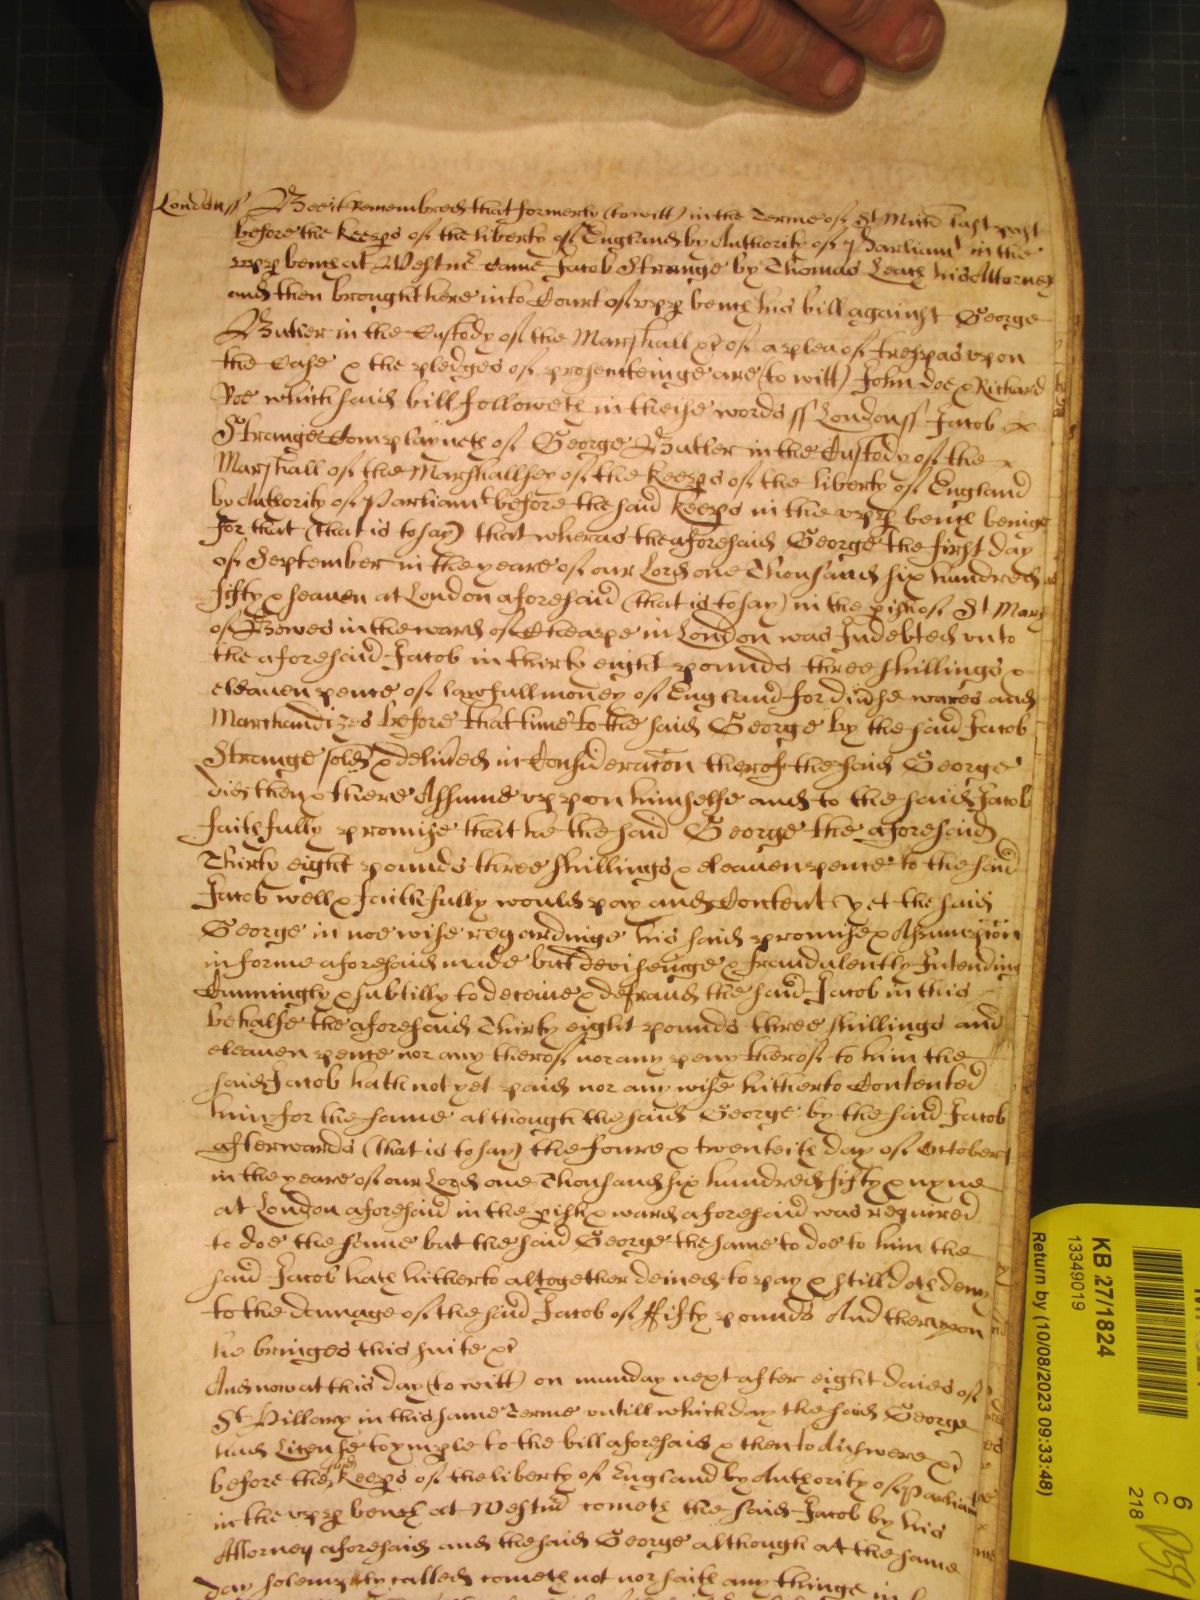 London ss Bee it Remembred that formerly (to witt) in the Terme of St Mich last past
before the keeps of the liberty of England by Authority of Parliamt in the
upp bench at Westmr Came Jacob Strange by Thomas Leach his Attorney
and then brought here into Court of upp bench his bill against George
Butler in the Custody of the Marshall &c of a plea of trespas upon
the Case & the pledges of prosecuteinge are (to witt) John Doe & Richard
Roe which said bill followeth in theise words ss London ss Jacob
Strange Complayneth of George Butler in the Custody of the
Marshall of the Marshallsey of the keeps of the liberty of England
by Authority of Parliamt before the said keeps in the upp bench beinge
for that (that is to say) that wheras the aforesaid George the first day
of September in the yeare of our Lord one Thousand six hundred
fifty & seaven at London aforesaid (that is to say) in the pish of St Mary
of Bowes in the ward of Cheape in London was Indebted unto
the aforesaid Jacob in thirty eight pounds three shillings &
eleaven pence of lawfull money of England for divse wares and
Marchandizes before that time to the said George by the said Jacob
Strange sold & delived in Consideracon therof the said George
did then & there Assume uppon himselfe and to the said Jacob
faithfully promise that he the said George the aforesaid
Thirty eight pounds three shillings & eleaven pence to the said
Jacob well & faithfully would pay and Content yet the said
George in noe wise regardinge his said promise & Assumpcion
in forme aforesaid made but deviseinge & fraudulently Intending
Cunningly & subtilly to deceive & defraud the said Jacob in this
behalfe the aforesaid Thirty eight pounds three shillings and
eleaven pence nor any therof nor any peny therof to him the
said Jacob hath not yet paid nor any wise hitherto Contented
him for the same although the said George by the said Jacob
afterwards (that is to say) the foure & twenteith day of October
in the yeare of our Lord one Thousand six hundred fifty & nyne
at London aforesaid in the pish & ward aforesaid was required
to doe the same but the said George the same to doe to him the
said Jacob hath hitherto altogether denied to pay & still doth deny
to the damage of the said Jacob of ffifty pounds And therupon
he bringes this suite &c
And now at this day (to witt) on munday next after eight daies of
St Hillary in this same Terme untill which day the said George
had License to ymple to the bill aforesaid & then to Answere &c
before the said keeps of the liberty of England by Authority of Parliamt
in the upp bench at Westmr cometh the said Jacob by his
Attorney aforesaid and the said George although at the same
day solemply called cometh not nor saith any thinge in
KB 27/1824
13349019
Return by (10/08/2023 09:33:48)
6
C
218